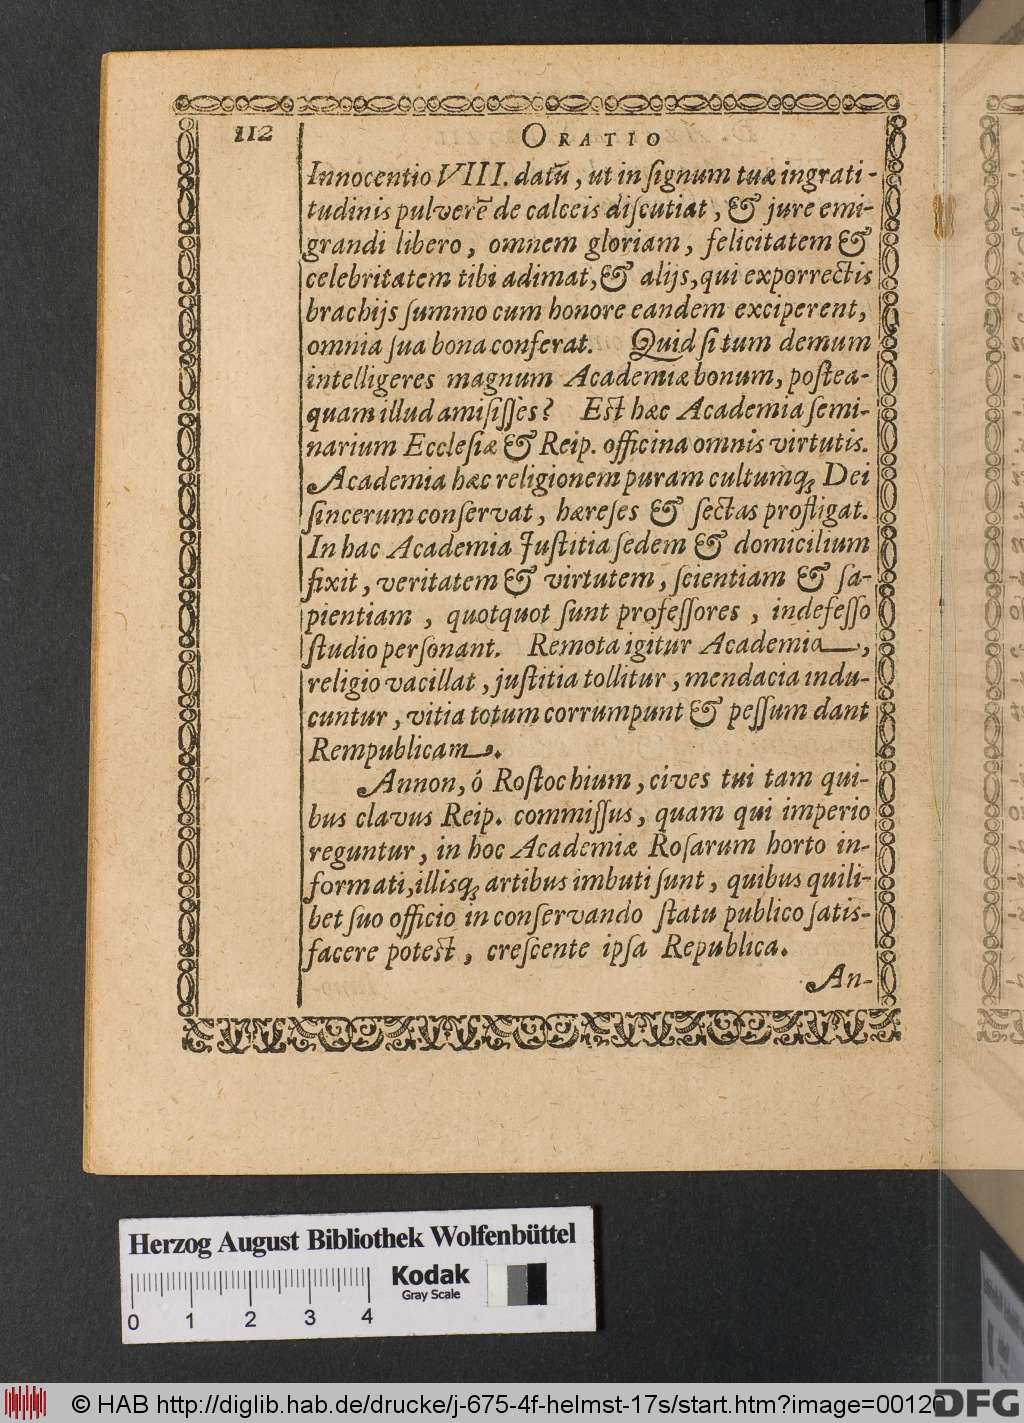 112
ORATIO
Innocentio VIII. datū, ut in ſignum tuæ ingrati-
tudinis pulverē de calceis diſcutiat, & jure emi-
grandi libero, omnem gloriam, felicitatem &
celebritatem tibi adimat, & alijs, qui exporrectis
brachijs ſummo cum honore eandem exciperent,
omnia ſua bona conferat. Quid ſi tum demum
intelligeres magnum Academiæ bonum, poſtea-
quam illud amiſiſſes? Eſt hæc Academia ſemi-
narium Eccleſiæ & Reip. officina omnis virtutis.
Academia hæc religionem puram cultumq; Dei
ſincerum conſervat, hæreſes & ſectas profligat.
In hac Academia Juſtitia ſedem & domicilium
fixit, veritatem & virtutem, ſcientiam & ſa-
pientiam, quotquot ſunt profeſſores, indefeſſo
ſtudio perſonant. Remota igitur Academia,
religio vacillat, juſtitia tollitur, mendacia indu-
cuntur, vitia totum corrumpunt & peſſum dant
Rempublicam.
Annon, ó Roſtochium, cives tui tam qui-
bus clavus Reip. commiſſus, quam qui imperio
reguntur, in hoc Academiæ Roſarum horto in-
formati, illisq; artibus imbuti ſunt, quibus quili-
bet ſuo officio in conſervando ſtatu publico ſatis-
facere poteſt, creſcente ipſa Republica.
An-
Herzog August Bibliothek Wolfenbüttel
Kodak
Gray Scale
0 1 2 3 4
© HAB http://diglib.hab.de/drucke/j-675-4f-helmst-17s/start.htm?image=00120
DFG